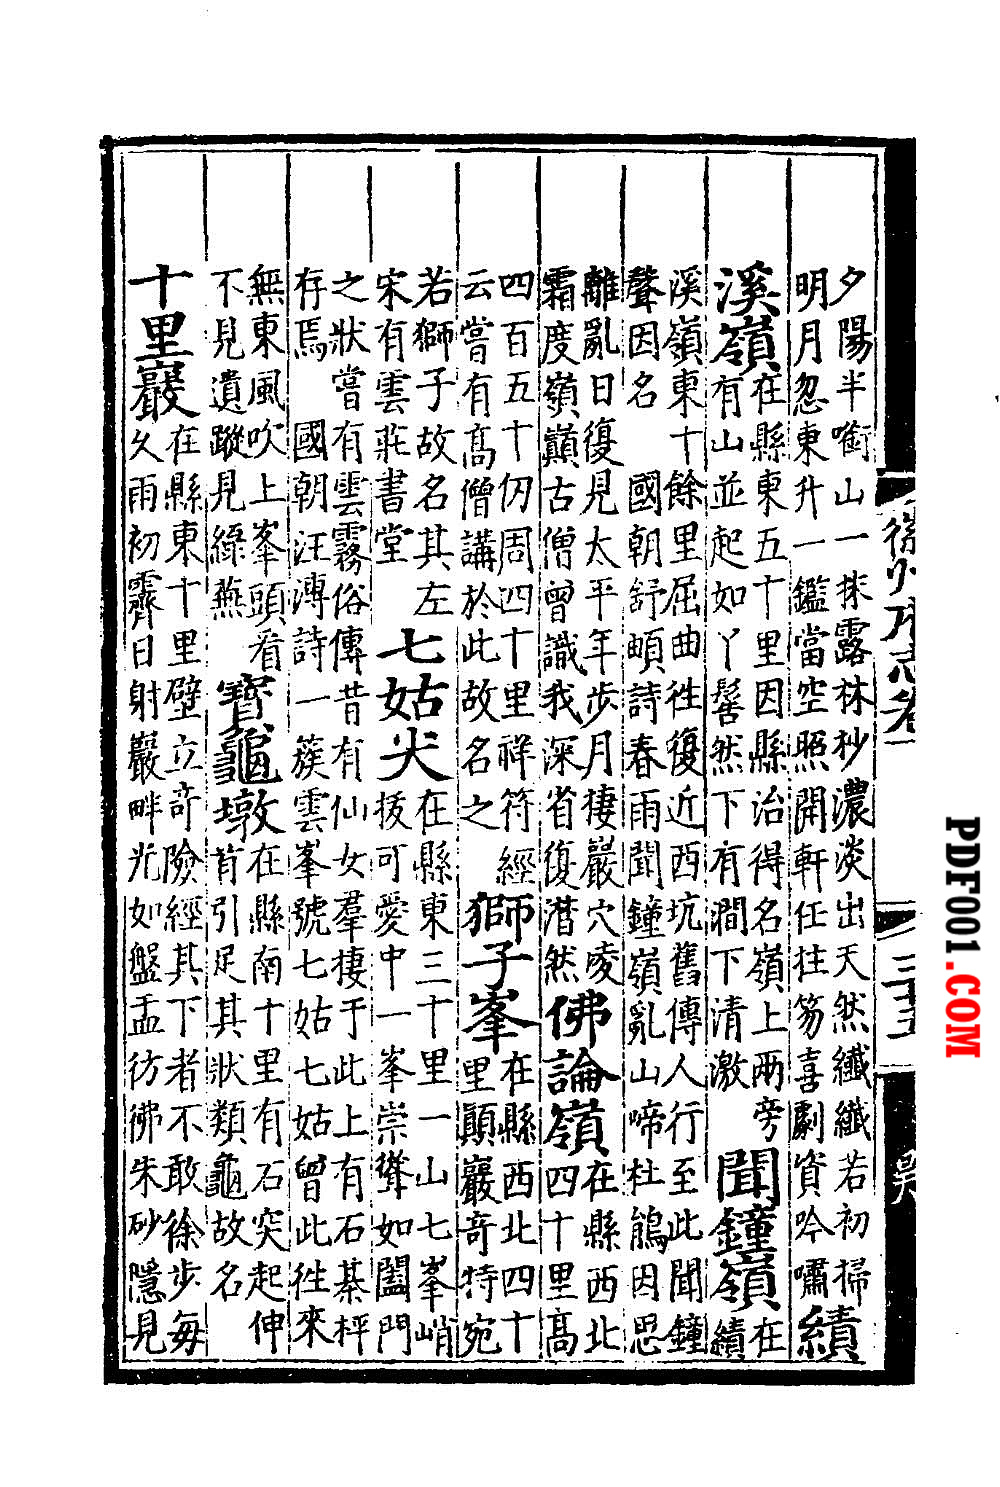 夕陽半啣山一抹露林杪濃淡出天然纖纖若初掃
明月忽東升一鑑當空照開軒任拄笏喜劇資吟嘯績
溪嶺在縣東五十里因縣治得名嶺上兩旁
有山並起如丫髻然下有澗下清激聞鐘嶺在
績
溪嶺東十餘里屈曲徃復近西坑舊傳人行至此聞鐘
聲因名 國朝舒頔詩春雨聞鐘嶺亂山啼杜鵑因思
離亂日復見太平年步月棲巖穴凌
霜度嶺巔古僧曾識我深省復潸然佛論嶺在縣西北
四十里高
四百五十仞周四十里祥符經
云嘗有高僧講於此故名之獅子峯在縣西北四十
里顛巖奇特宛
若獅子故名其左
宋有雲莊書堂七姑尖在縣東三十里一山七峯峭
拔可愛中一峯崇聳如闔門
之狀嘗有雲霧俗傳昔有仙女羣棲于此上有石棊枰
存焉 國朝汪溥詩一簇雲峯號七姑七姑曾此徃來
無東風吹上峯頭看
不見遺蹤見綠蕪寶龜墩在縣南十里有石突起伸
首引足其狀類龜故名
十里巖在縣東十里壁立竒險經其下者不敢徐步每
久雨初霽日射巖畔光如盤盂彷彿朱砂隱見
徽州府志卷一
三十五
PDF001.COM